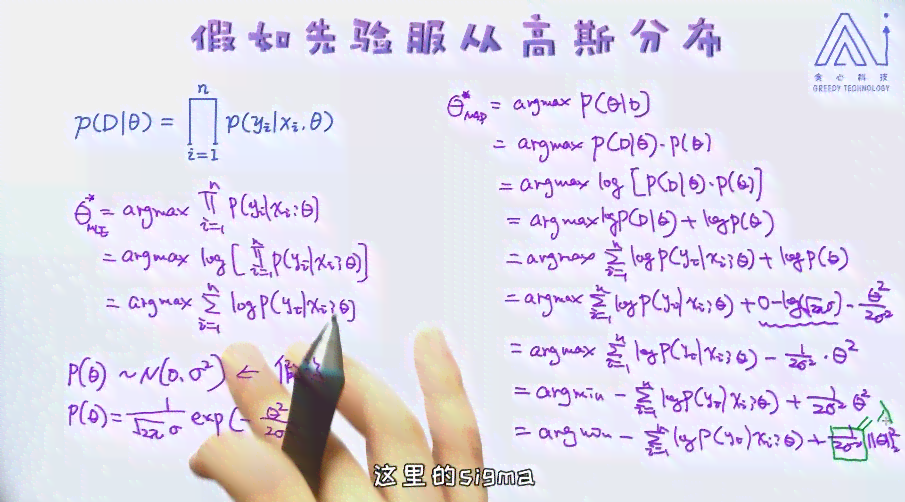 假如先验服从高斯分布
贪心科技
GREEDY TECHNOLOGY
p(D|θ) = ∏_{i=1}^{n} p(y_i|x_i, θ)
θ*_MLE = argmax ∏_{i=1}^{n} P(y_i|x_i;θ)
= argmax log[∏_{i=1}^{n} P(y_i|x_i;θ)]
= argmax ∑_{i=1}^{n} log P(y_i|x_i;θ)
P(θ) ~ N(0, σ²) ←
P(θ) = 1/(√(2π) σ) exp(- θ²/2σ
θ*_MAP = argmax P(θ|D)
= argmax P(D|θ)·P(θ)
= argmax log [P(D|θ)·P(θ)]
= argmax log P(D|θ) + log P(θ)
= argmax ∑_{i=1}^{n} log P(y_i|x_i;θ) + log P(θ)
= argmax ∑_{i=1}^{n} log P(y_i|x_i;θ) + 0 - log(√2π σ) - θ²/2σ²
= argmax ∑_{i=1}^{n} log P(y_i|x_i;θ) - 1/2σ² · θ²
= argmin - ∑_{i=1}^{n} log P(y_i|x_i;θ) + 1/2σ² θ²
= argmin - ∑_{i=1}^{n} log P(y_i|x_i;θ) + 1/2σ² ||θ||²_2
λ
这里的sigma